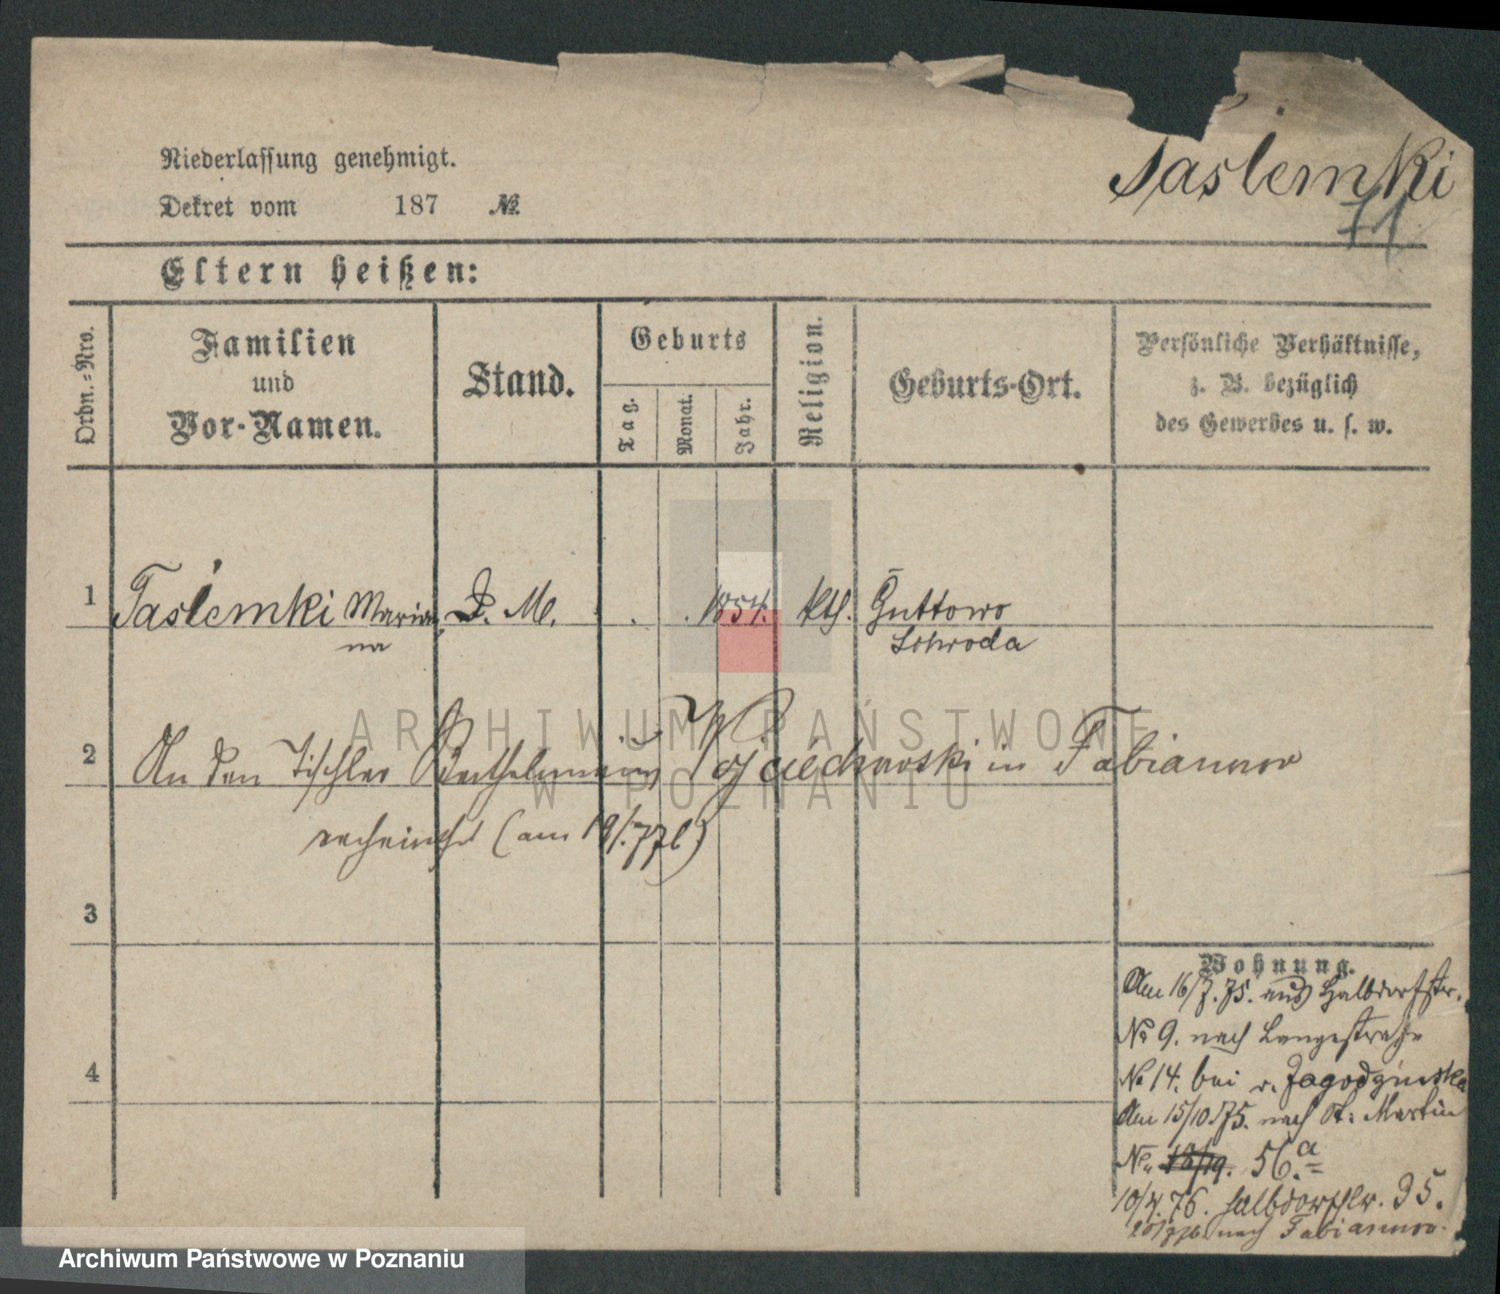 Niederlassung genehmigt.
Dekret vom 187 №
Taslemki
71
Eltern heißen:
Ordn.-Nro.
Familien
und
Vor-Namen.
Stand.
Geburts
Tag.
Monat.
Jahr.
Religion.
Geburts-Ort.
Persönliche Verhältnisse,
z. B. bezüglich
des Gewerbes u. s. w.
1 Taslemki Marian D. M. 1854. kth. Guttowo
na Schroda
2 An den Tischler Wojciechowski in Fabianowo
(am 19/7 76)
3
Wohnung.
Am 16/7. 75. aus Halbdorfstr.
№ 9. nach Langestraße
4
№ 14. bei v. Jagodzinska
Am 15/10. 75. nach St: Martin
No. 18/19. 56.a
10/4. 76. Halbdorfstr. 35.
nach Fabianowo.
ARCHIWUM PAŃSTWOWE
W POZNANIU
Archiwum Państwowe w Poznaniu